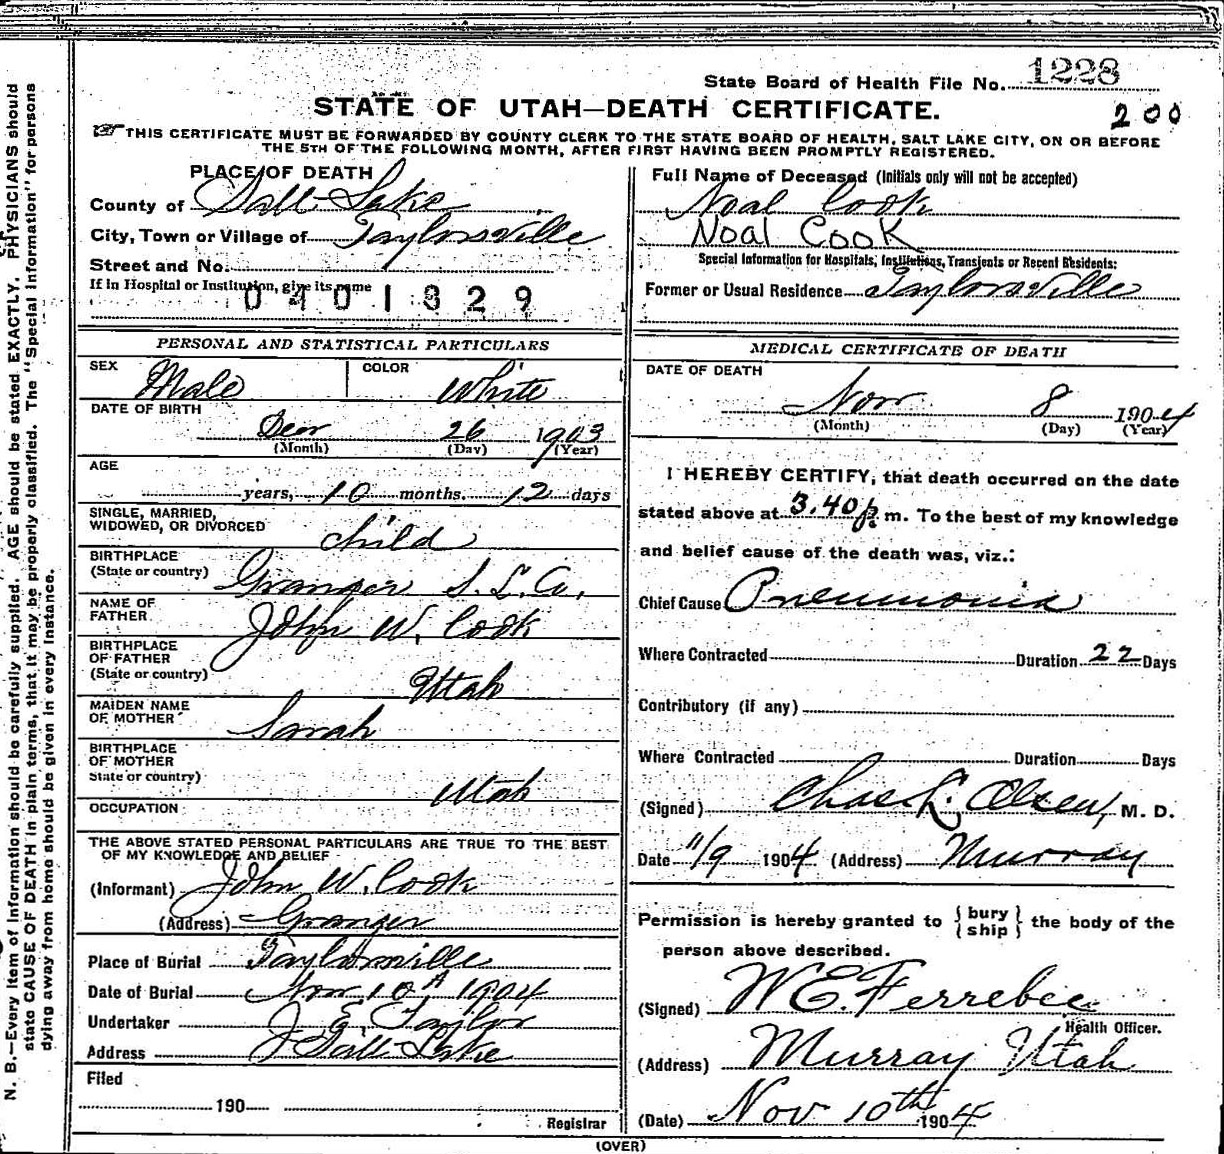 State Board of Health File No. 1228
STATE OF UTAH—DEATH CERTIFICATE.
200
☞THIS CERTIFICATE MUST BE FORWARDED BY COUNTY CLERK TO THE STATE BOARD OF HEALTH, SALT LAKE CITY, ON OR BEFORE
THE 5TH OF THE FOLLOWING MONTH, AFTER FIRST HAVING BEEN PROMPTLY REGISTERED.
PLACE OF DEATH
County of Salt Lake
City, Town or Village of Taylorsville
Street and No.
If in Hospital or Institution, give its name
0401829
PERSONAL AND STATISTICAL PARTICULARS
SEX Male COLOR White
DATE OF BIRTH
Decr 26 1903
(Month) (Day) (Year)
AGE
years, 10 months. 12 days
SINGLE, MARRIED,
WIDOWED, OR DIVORCED child
BIRTHPLACE
(State or country) Granger S. L. Co.
NAME OF
FATHER John W. Cook
BIRTHPLACE
OF FATHER
(State or country) Utah
MAIDEN NAME
OF MOTHER Sarah
BIRTHPLACE
OF MOTHER
State or country) Utah
OCCUPATION
THE ABOVE STATED PERSONAL PARTICULARS ARE TRUE TO THE BEST
OF MY KNOWLEDGE AND BELIEF
(Informant) John W. Cook
(Address) Granger
Place of Burial Taylorsville
Date of Burial Nov 10th 1904
Undertaker J. E. Taylor
Address Salt Lake
Filed
190
Registrar
Full Name of Deceased (Initials only will not be accepted)
Noal Cook
Noal Cook
Special Information for Hospitals, Institutions, Transients or Recent Residents:
Former or Usual Residence Taylorsville
MEDICAL CERTIFICATE OF DEATH
DATE OF DEATH
Nov 8 1904
(Month) (Day) (Year)
I HEREBY CERTIFY, that death occurred on the date
stated above at 3.40 p. m. To the best of my knowledge
and belief cause of the death was, viz.:
Chief Cause Pneumonia
Where Contracted Duration 22 Days
Contributory (if any)
Where Contracted Duration Days
(Signed) Chas. L. Olsen, M. D.
Date 11/9 1904 (Address) Murray
Permission is hereby granted to {bury
ship} the body of the
person above described.
(Signed) W E. Ferrebee
Health Officer.
(Address) Murray Utah
(Date) Nov 10th 1904
(OVER)
N. B.—Every item of Information should be carefully supplied. AGE should be stated EXACTLY. PHYSICIANS should
state CAUSE OF DEATH in plain terms, that it may be properly classified. The "Special Information" for persons
dying away from home should be given in every instance.